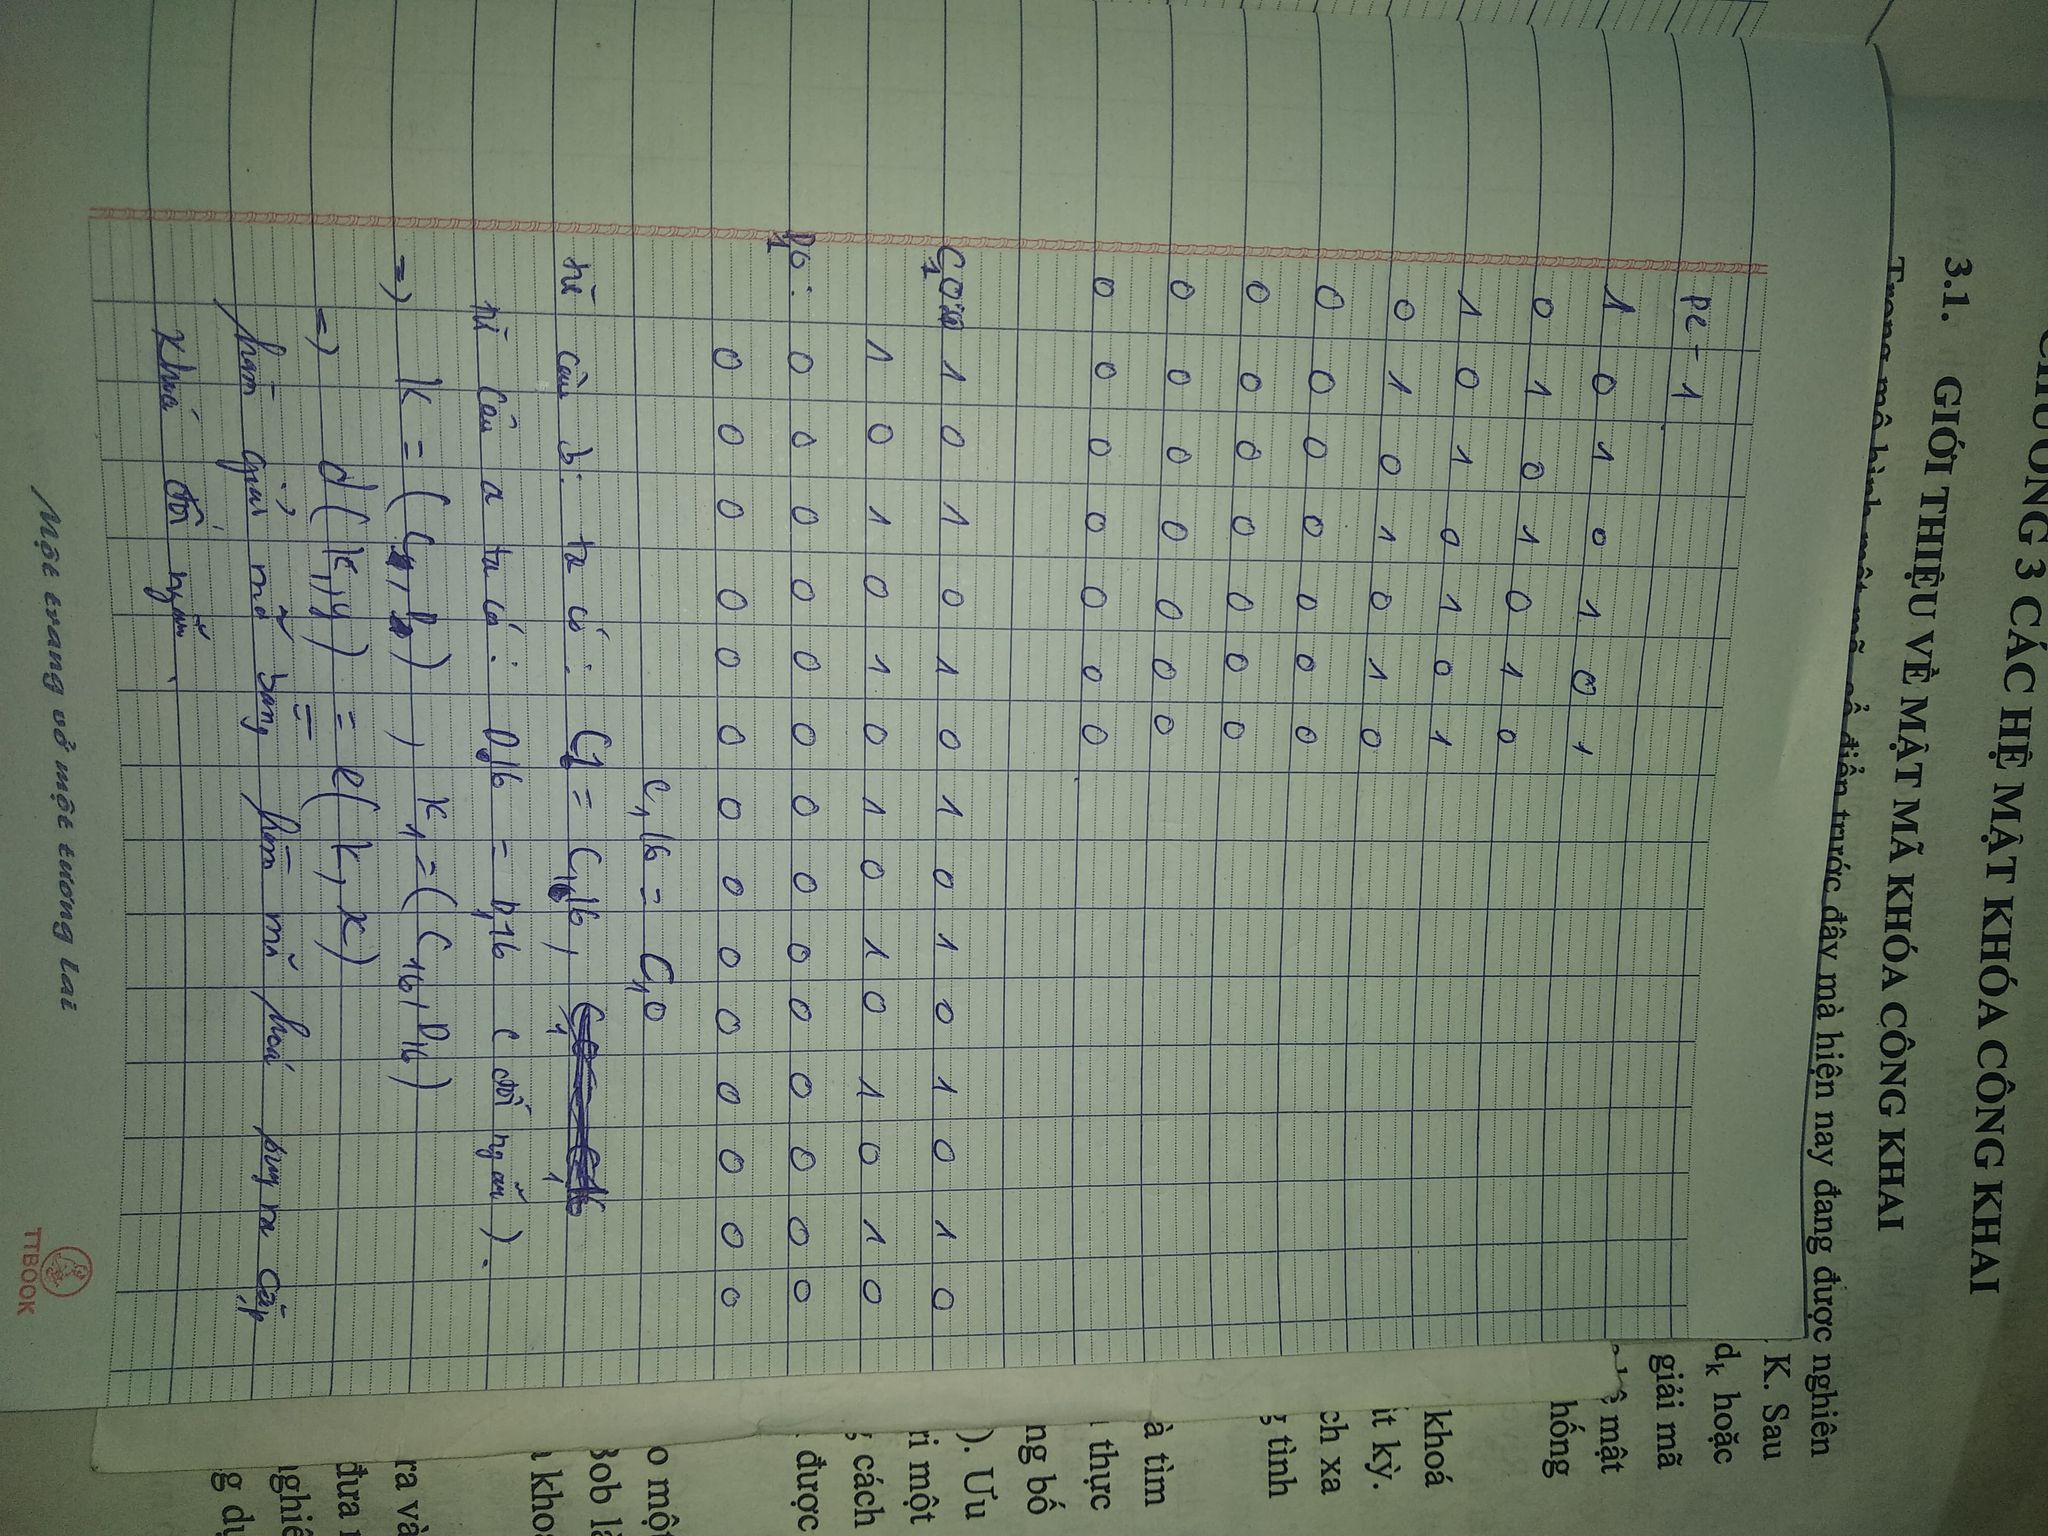 CHƯƠNG 3 CÁC HỆ MẬT KHÓA CÔNG KHAI
3.1. GIỚI THIỆU VỀ MẬT MÃ KHÓA CÔNG KHAI
Trong mô hình mật mã cổ điển trước đây mà hiện nay đang được nghiên
K. Sau
dk hoặc
giải mã
mật
hống
khoá
kỳ.
ch xa
tình
à tìm
thực
ng bố
). Ưu
ri một
cách
được
o một
Bob là
kho
ra và
đưa
nghiê
g dụ
pc - 1
1 0 1 0 1 0 1
0 1 0 1 0 1 0
1 0 1 0 1 0 1
0 1 0 1 0 1 0
0 0 0 0 0 0 0
0 0 0 0 0 0 0
0 0 0 0 0 0 0
0 0 0 0 0 0 0
C10: 1 0 1 0 1 0 1 0 1 0 1 0 1 0
1 0 1 0 1 0 1 0 1 0 1 0 1 0
D10: 0 0 0 0 0 0 0 0 0 0 0 0 0 0
0 0 0 0 0 0 0 0 0 0 0 0 0 0
C116 = C10
từ câu b: ta có:
từ câu a ta có: = D116 (đối ngẫu).
=> K = , K1 = (C16, D16)
=> d(K1, y) = e(k, x)
hàm giải mã bằng hàm mã hoá suy ra cặp
khoá đối ngẫu.
Một trang vở một tương lai
TTBOOK